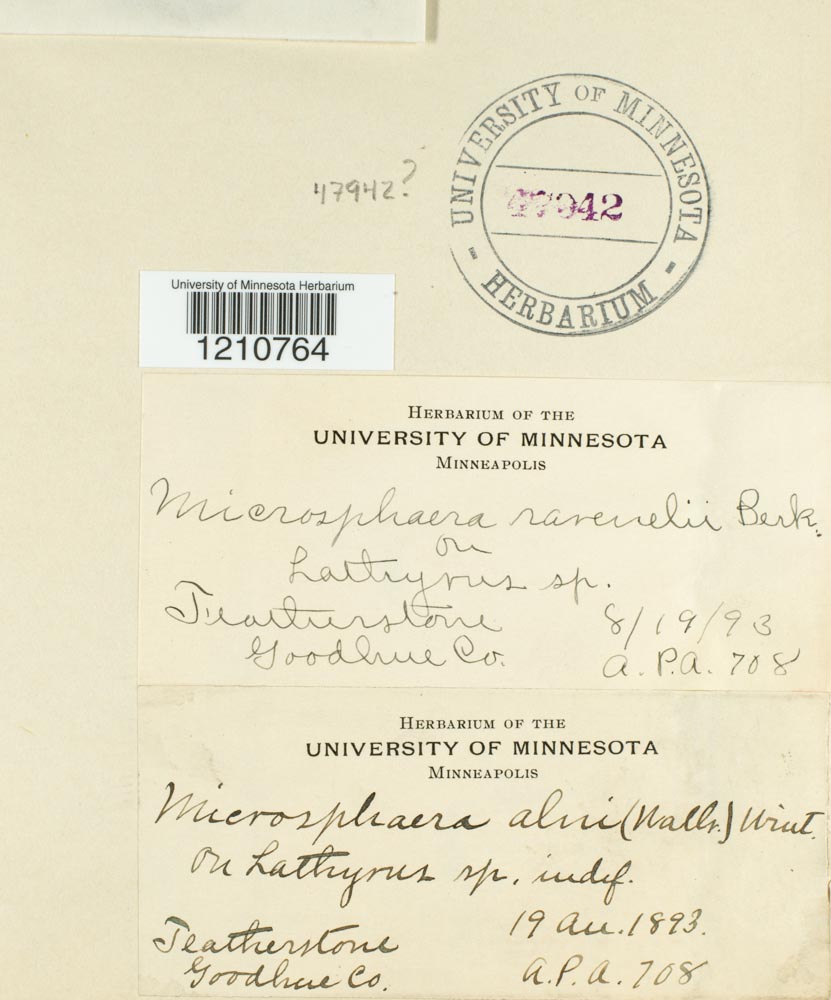 UNIVERSITY OF MINNESOTA
47942
- HERBARIUM -
47942?
University of Minnesota Herbarium
1210764
HERBARIUM OF THE
UNIVERSITY OF MINNESOTA
MINNEAPOLIS
Microsphaera ravenelii Berk.
on
Lathyrus sp.
Featherstone 8/19/93
Goodhue Co. A.P.A. 708
HERBARIUM OF THE
UNIVERSITY OF MINNESOTA
MINNEAPOLIS
Microsphaera alni (Wallr.) Wint.
on Lathyrus sp. indef.
19 Au. 1893.
Featherstone
Goodhue Co. A.P.A. 708